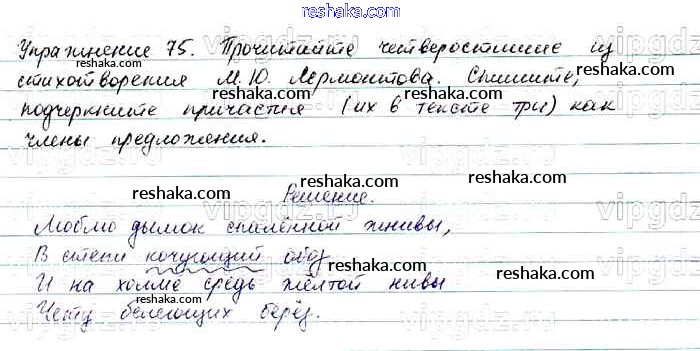 reshaka.com
Упражнение 75. Прочитайте четверостишие из
reshaka.com
стихотворения М.Ю. Лермонтова. Спишите,
подчеркните причастия (их в тексте три) как
reshaka.com reshaka.com
члены предложения.
reshaka.com reshaka.com
Решение.
reshaka.com
Люблю дымок спалённой жнивы,
В степи кочующий обоз
reshaka.com
И на холме средь жёлтой нивы
reshaka.com
Чету белеющих берёз.
reshaka.com